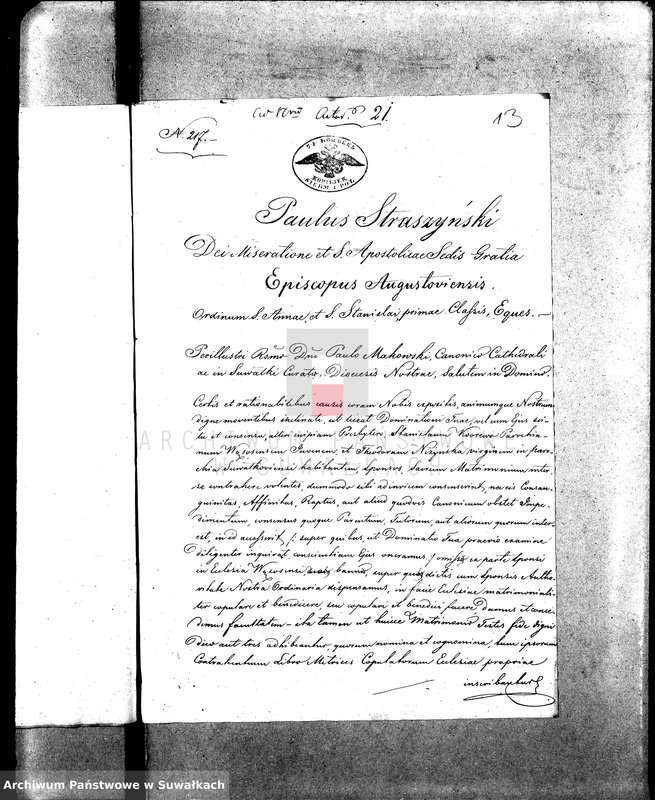 Ad Nrum Actov. 21.
13
N. 217.
75 KOPIEEK
KOPIEJEK
Paulus Straszyński
Dei Miseratione et S. Apostolicae Sedis Gratia
Episcopus Augustoviensis.
Ordinum S. Annae, et S. Stanislai, primae Classis, Eques.
Perillustri Rsmo Dno Paulo Makowski, Canonico Cathedrali
ac in Suwałki Curato, Dioecesis Nostrae, Salutem in Domino.
Certis et rationabilibus causis coram Nobis expositis, animumque Nostrum
digne moventibus inclinati, ut liceat Dominationi Tuae, vel cum Ejus sci-
tu et consensu, alteri cuipiam Presbytero, Stanislaum Parochia-
num Wąsosensem Juvenem, et Theodoram Niżyńska virginem in paro-
chia Suwałkoviensi habitantem, Sponsos, Sacrum Matrimonium inter
se contrahere volentes, dummodo sibi adinvicem consenserint, nec eis Consan-
guinitas, Affinitas, Raptus, aut aliud quodvis Canonicum obstet Impe-
dimentum, consensus quoque Parentum, Tutorum, aut aliorum quorum inter-
est, in id accesserit, /: super quibus, ut Dominatio Tua praevio examine
diligenter inquirat, conscientiam Ejus oneramus :/ omissis ex parte Sponsi
in Ecclesia Wąsosensi bannis, super quibus dictis cum Sponsis Autho-
ritate Nostra Ordinaria dispensamus, in facie Ecclesiae matrimoniali-
ter copulare et benedicere, seu copulari et benedici facere, Damus et conce-
dimus facultatem – ita tamen ut huic Matrimonio Testes fide digni
duo aut tres adhibeantur, quorum nomina et cognomina, tum ipsorum
Contrahentium Libro Metrices Copulatorum Ecclesiae propriae
inscribantur
ARCHIWUM PAŃSTWOWE
W SUWAŁKACH
Archiwum Państwowe w Suwałkach